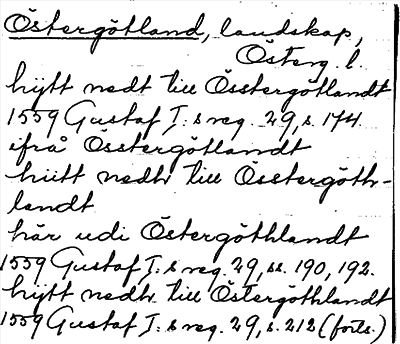 Östergötland, landskap,
Österg. l.
hijtt nedt till Össtergötlandt
1559 Gustaf I:s reg. 29, s. 174.
ifrå Össtergötlandt
hiitt nedtr till Össtergöth-
landt
här udi Östergöthlandt
1559 Gustaf I:s reg. 29, ss. 190, 192.
hijtt nedtr till Östergöthlandt
1559 Gustaf I:s reg. 29, s. 212 (forts.)